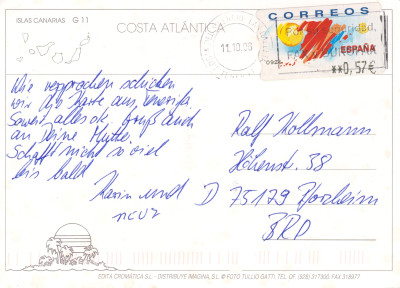 ISLAS CANARIAS G 11
COSTA ATLÁNTICA
11.10.06
CORREOS
ESPAÑA
**0,57€
Wie versprochen schicken
wir die Karte aus Teneriffa.
Soweit alles ok. Gruß auch
an Deine Mutter.
Schafft nicht so viel
bis bald
Karin und
Ralf Hollmann
Höhenst. 38
D 75179 Pforzheim
BRD
EDITA CROMATICA S.L. - DISTRIBUYE IMAGINA, S.L. © FOTO TULLIO GATTI - TEL. OF. (928) 317365 FAX 318977